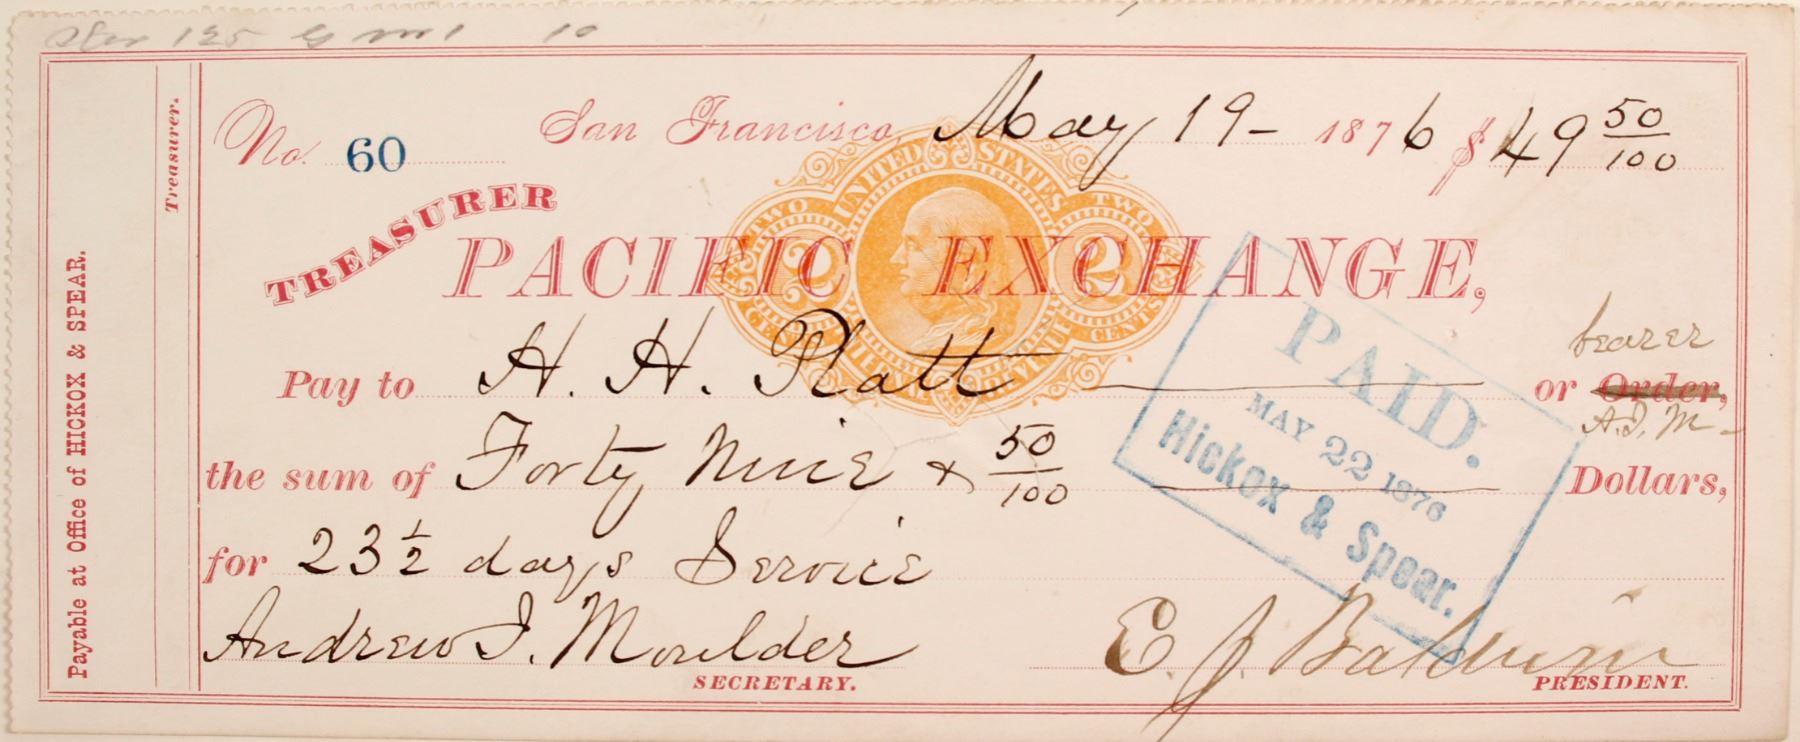 No. 60 San Francisco, May 19 - 1876 $49 50/100
TREASURER
PACIFIC EXCHANGE,
UNITED STATES
TWO TWO
2 2
CENTS CENTS
INTERNAL REVENUE
bearer
Pay to H. H. Platt or Order,
A.J. M-
the sum of Forty Nine & 50/100 Dollars,
for 23 1/2 days Service
Andrew J. Moulder E. J. Baldwin
SECRETARY. PRESIDENT.
PAID.
MAY 22 1876
Hickox & Spear.
Treasurer.
Payable at Office of HICKOX & SPEAR.